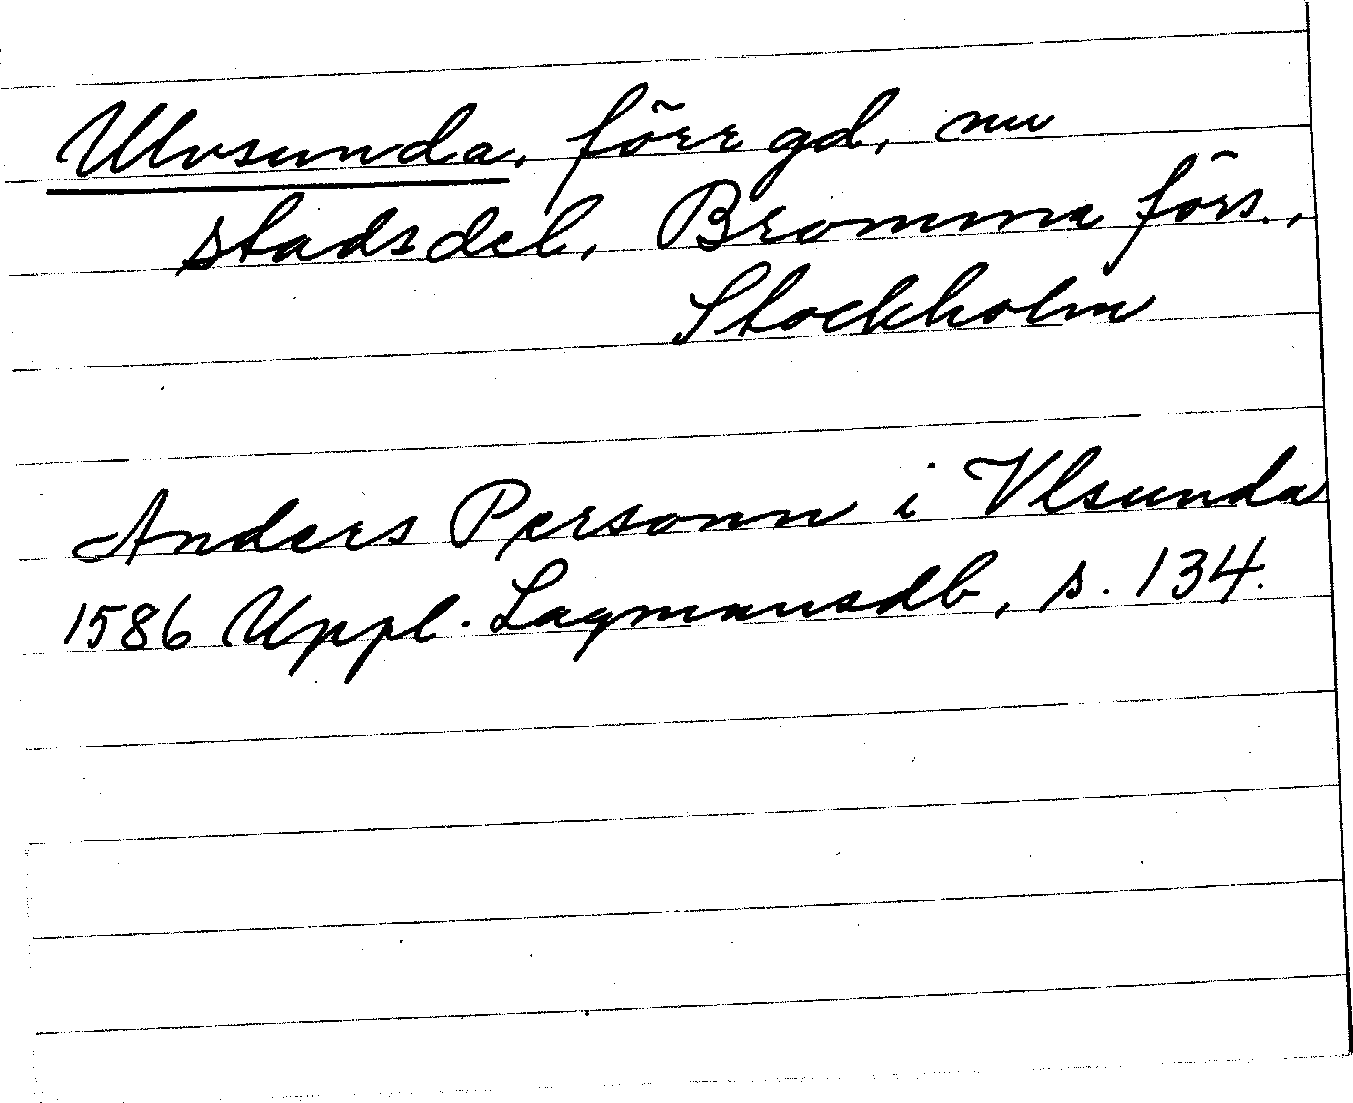 Ulvsunda, förr gd, nu
stadsdel, Bromma förs.,
Stockholm
Anders Personn i Vlsunda
1586 Uppl. Lagmansdb, s. 134.